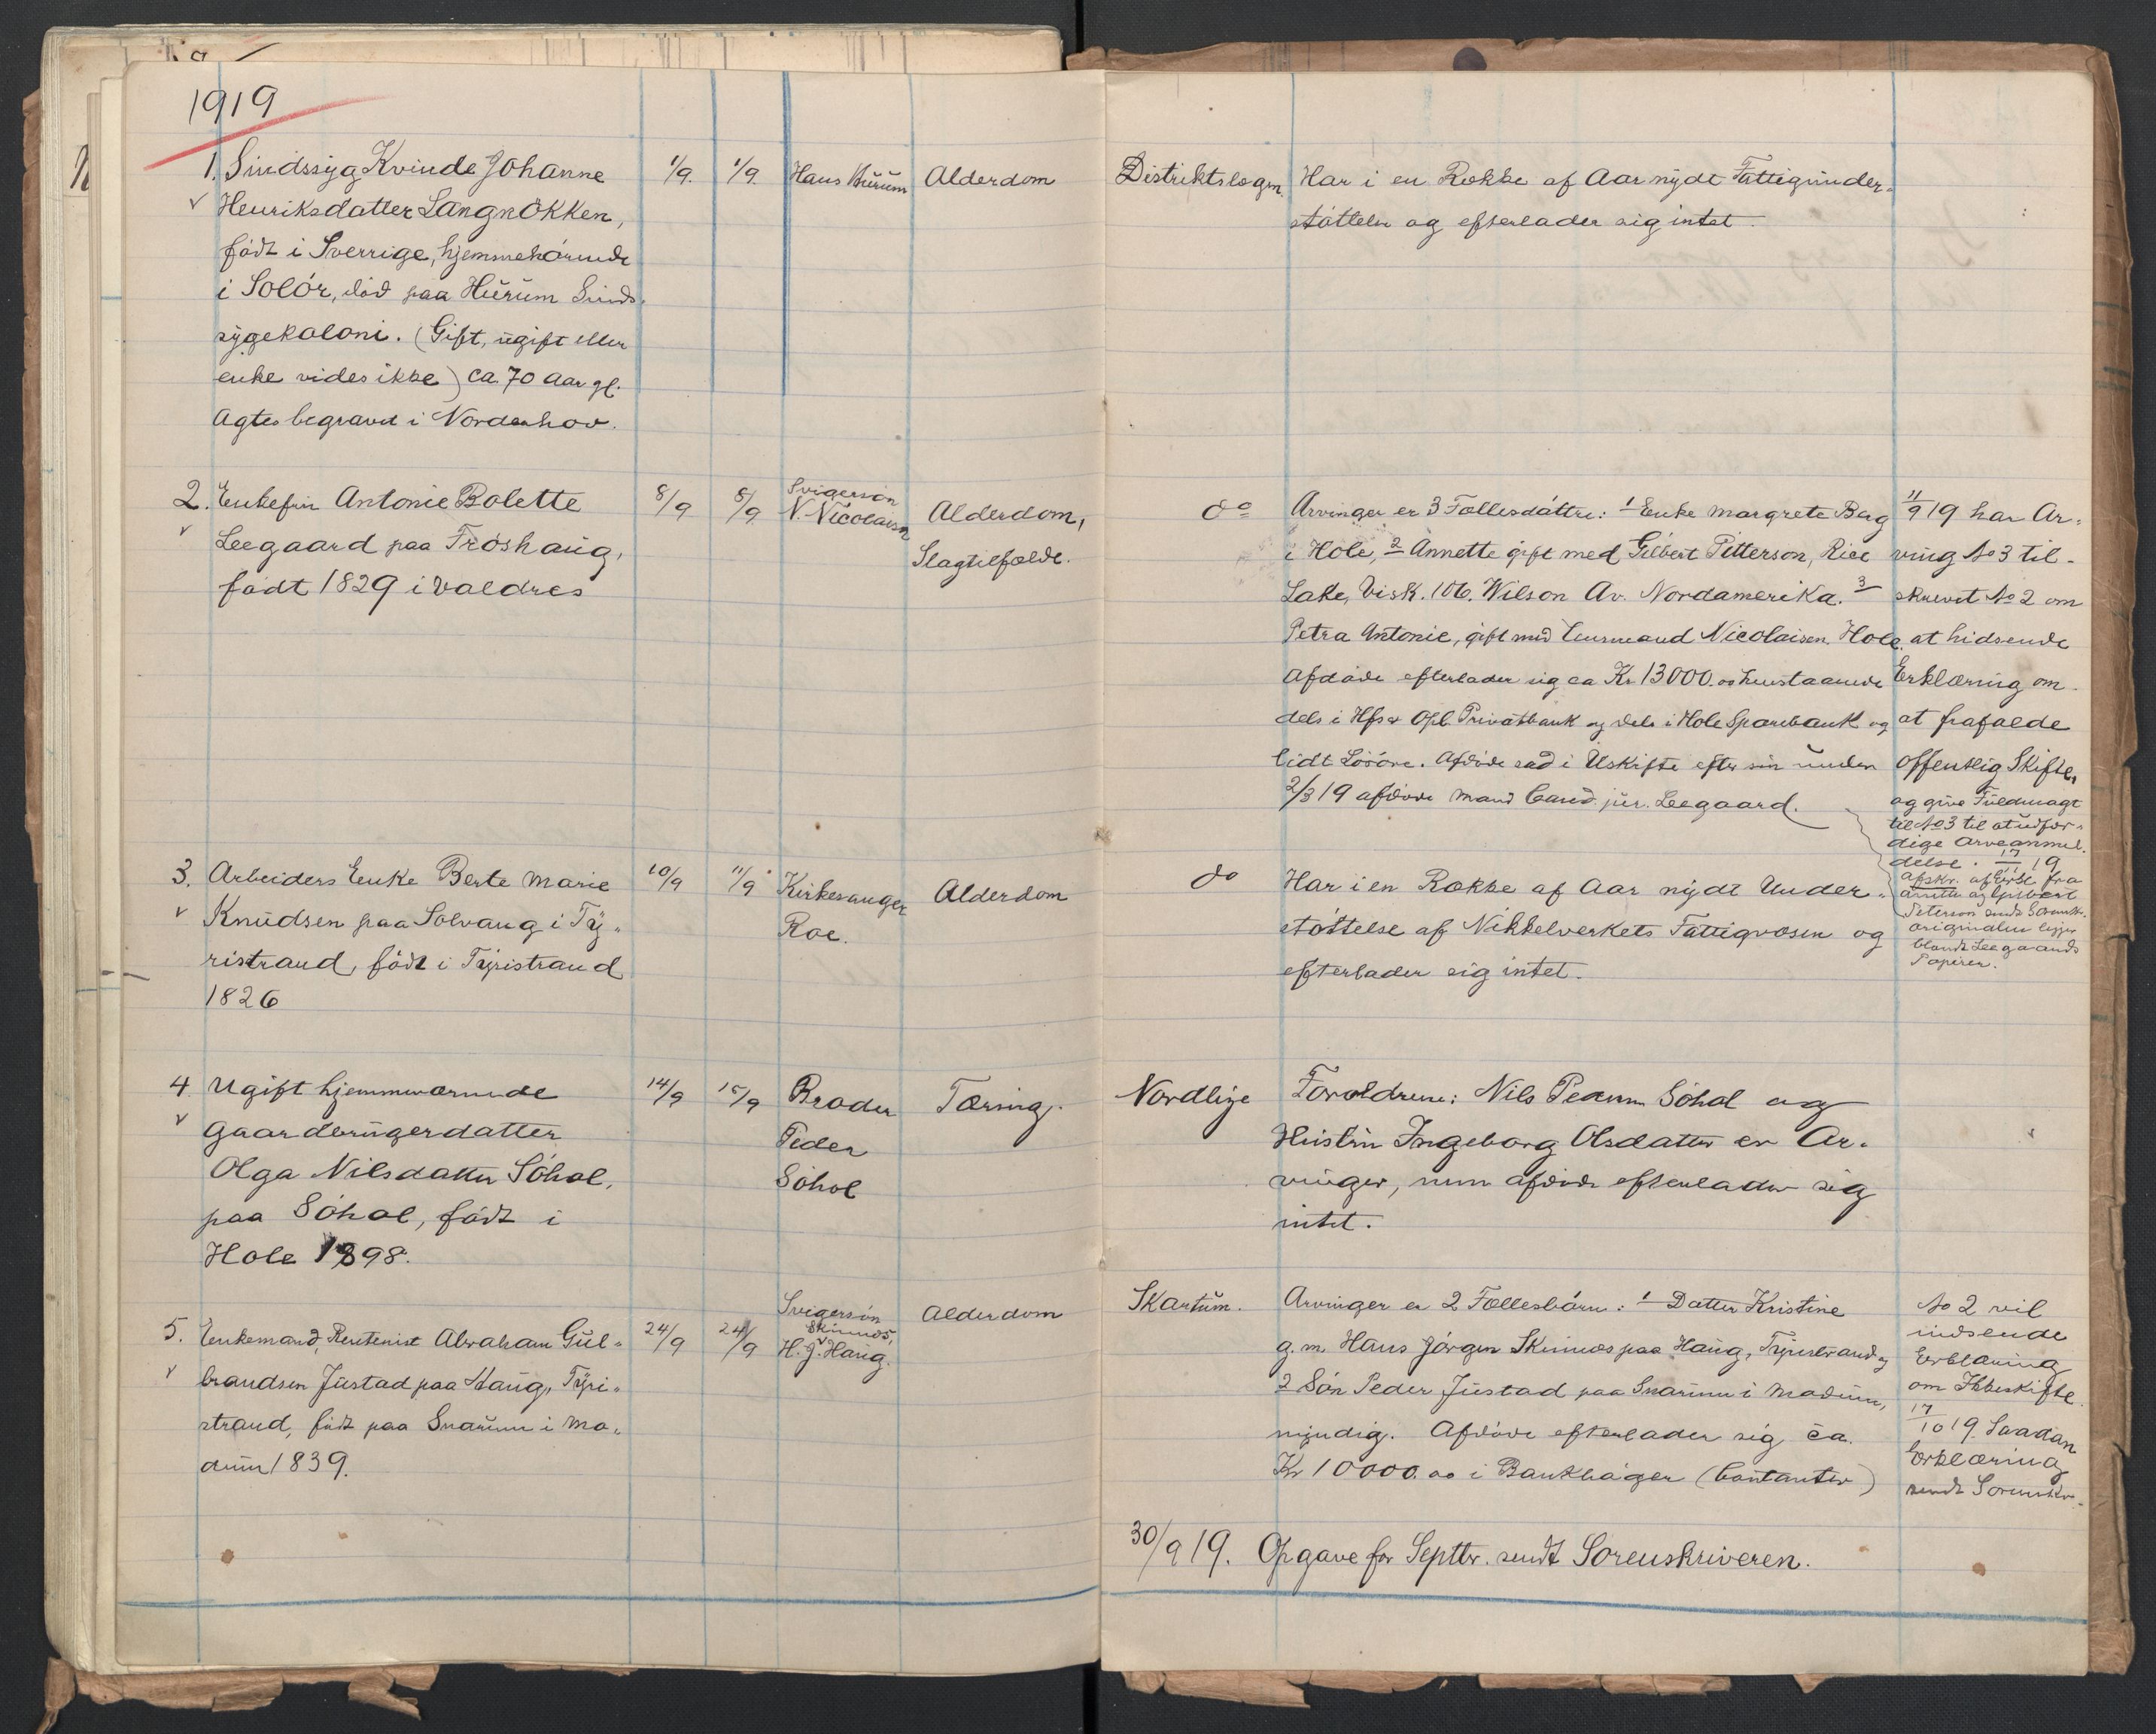 1919
1. Sindssyg Kvinde Johanne 1/9. 1/9. Hans Hurum Alderdom Distriktslægen. Har i en Række af Aar nydt Fattigunder-
Henriksdatter Langnökken, støttelse og efterlader sig intet.
født i Sverrige, hjemmehørende
i Solør, død paa Hurum Sinds-
sygekoloni. (Gift, ugift eller
enke vides ikke) ca. 70 Aar gl.
Agtes begravet i Norderhov.
2. Enkefru Antonie Bolette 8/9 8/9 Svigersøn N. Nicolaisen Alderdom, do Arvinger er 3 Fællesdøttre: 1 Enke Margrete Berg
Leegaard paa Frøshaug, Slagtilfælde. i Hole, 2 Annette gift med Gilbert Pitterson, Rice
født 1829 i Valdres Lake, Visk. 106. Wilson Av. Nordamerika. 3
Petra Antonie, gift med Lensmand Nicolaisen. Hole.
Afdøde efterlader sig ca Kr 13000.00 henstaaende
dels i Hfs & Opl. Privatbank og dels i Hole Sparebank og
lidt Løsøre. Afdøde sad i Uskifte efter sin under
2/3 19 afdøde Mand Cand. jur. Leegaard.
11/9 19 har Ar-
ving No 3 til-
skrevet No 2 om
at hidsende
Erklæring om
at frafalde
offentlig Skifte,
og give Fuldmagt
til No 3 til at udfær-
dige Arveanmel-
delse. 17/11 19
afskr. af Erkl. fra
Anette og Gilbert
Peterson sendt Sorenskr.
originalen ligger
blandt Leegaards
Papirer.
3. Arbeiders Enke Berte Marie 10/9 11/9 Kirkesanger Alderdom do Har i en Række af Aar nydt Under-
Knudsen paa Solvang i Ty- Roe. støttelse af Nikkelverkets Fattigvæsen og
ristrand, født i Tyristrand efterlader sig intet.
1826
4. Ugift hjemmeværende 14/9 15/9 Broder Tæring. Nordlie Forældrene: Nils Pedersen Søhol og
Gaardbrugerdatter Peder Hustru Ingeborg Olsdatter er Ar-
Olga Nilsdatter Søhol, Søhol vinger, men afdøde efterlader sig
paa Søhol, født i intet.
Hole 1898.
5. Enkemand, Rentenist Abraham Gul- 24/9 24/9 Svigersøn H. J. Skinnes, Haug. Alderdom Skartum. Arvinger er 2 Fællesbørn: 1 Datter Kristine
brandsen Justad paa Haug, Tyri- g. m. Hans Jørgen Skinnes paa Haug, Tyristrand og
strand, født paa Snarum i Mo- 2 Søn Peder Justad paa Snarum i Modum,
dum 1839. myndig. Afdøde efterlader sig ca.
Kr 10000.00 i Bankbøger (Contanter)
No 2 vil
indsende
Erklæring
om Ikkeskifte.
17/10 19. Saadan
Erklæring
sendt Sorenskr.
30/9 19. Opgave for Septbr. sendt Sorenskriveren.